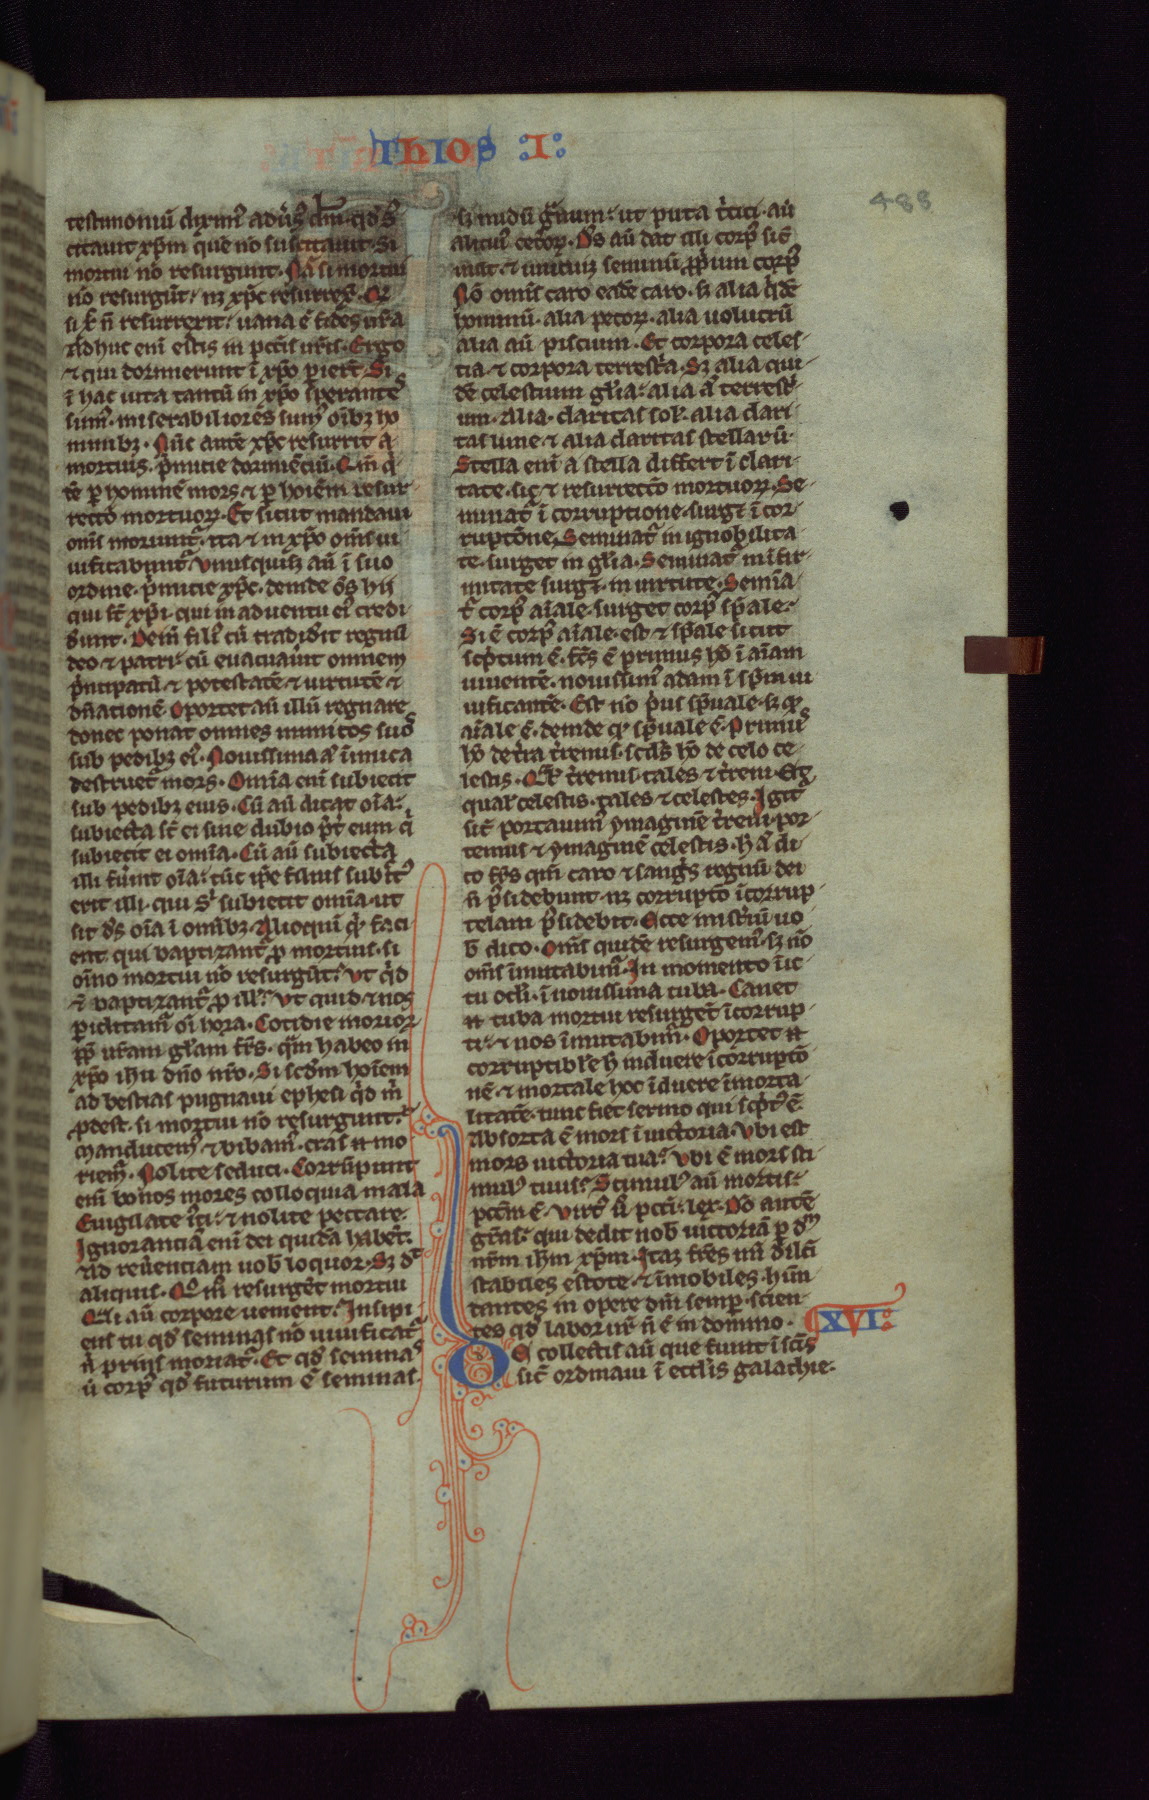 THIOS I
488
testimoniū dixim᷒ adūs᷒ dm̄ qd̓ s᷒
citauit xp̄m quē nō suscitauit si
mortui nō resurgunt. Nā si mortui
nō resurgūt. nꝫ xp̄c resurrex̄. Qr̄
si x̄ n̄ resurrexit. uana ē fides ur̄a
Adhuc eni estis in pctīs ur̄is. Ergo
⁊ qui dormierunt ī xp̄o perier̄t. Si
ī hac uita tantū in xp̄o sperantes
sum᷒. miserabiliores sum᷒ oībꝫ ho
minibꝫ. Nūc autē xp̄c resurrexit a
mortuis. p̄mitie dormiēciū. Qm̄ q̄
tē p hominē mors ⁊ p hoiēm resur
rectō mortuoꝝ. Et sicut in adam
om̄s moriunt̄. ita ⁊ in xp̄o om̄s ui
uificabunt̄. Vnusquisqꝫ aū ī suo
ordine. p̄mitie xp̄c. deinde ōs hii
qui st̄ xp̄i. qui in aduentu ei᷒ credi
derunt. Deīn finis cū tradiderit regnū
deo ⁊ patri. cū euacuau̓it omnem
p̄ncipatū ⁊ potestatē ⁊ uirtutē ⁊
dn̄ationē. Oportet aū illū regnare
donec ponat omnes inimicos suos
sub pedibꝫ ei᷒. Nouissima aū īimica
destruet̄ mors. Omīa eni subiecit
sub pedibꝫ eius. Cū aū dicat oīa
subiecta st̄ ei sine dubio p̄t̓ eum q̄
subiecit ei omīa. Cū aū subiecta
illi fu̓int oīa. tūc ip̄e filius subiect᷒
erit illi. qui s᷒ subiecit omīa ut
sit ds̄ oīa ī omībꝫ. Alioqui q̄d faci
ent qui baptizant̄ p mortuis. si
oīno mortui nō resurgūt. Vt q̄d
⁊ baptizant̄ p ill᷒. Vt quid ⁊ nos
periclitam̄ oī hora. Cotidie morior
pp̄ ur̄am gl̄am fr̄s. qm̄ habeo in
xp̄o ihu dn̄o nr̄o. Si scd̄m hoīem
ad bestias pugnaui ephesi q̄d m̓
pdest. si mortui nō resurgunt.
Manducem᷒ ⁊ bibam᷒. cras n̄ mo
riem̄. Nolite seduci. Corrūpunt
eni bonos mores colloquia mala
Euigilate iusti ⁊ nolite peccare.
Ignorantiā eni dei quidā habēt.
Ad reuerentiam uob̄ loquor. Sꝫ dt̄
aliquis. Quo m̄ resurgēt mortui
Quali aū corpore uenient. Insipi
ens tu qd̓ seminas nō uiuificat̄
n̄ prius moriat̄. Et qd̓ seminas
n̄ corp᷒ qd̓ futurum ē seminas.
sꝫ nudū g̓num. ut puta t̓tici. aū
alicui᷒ cet̓oꝝ. Ds̄ aū dat illi corp᷒ sic̄
uult. ⁊ unicuiqꝫ seminū ꝓprium corp᷒
Nō omīs caro eadē caro. sꝫ alia q̓dē
hominū. alia pecoꝝ. alia uolucrū
alia aū piscium. Et corpora celes
tia ⁊ corpora terrestria. Sꝫ alia qui
dē celestium gl̄ia. alia aū terrestri
um. Alia claritas solis. alia clari
tas lune ⁊ alia claritas stellarū.
Stella eni a stella differt ī clari
tate. sic ⁊ resurrectō mortuoꝝ. Se
minat̄ ī corruptione. surgz ī cor
ruptōne. Seminat̄ in ignobilita
te. surget in gl̄ia. Seminat̄ in īfir
mitate surgz in uirtute. Semīa
t̄ corp᷒ aīale. surget corp᷒ sp̄ale.
Si ē corp᷒ aīale. est ⁊ sp̄ale sicut
sc̓ptum ē. fc̄s ē primus hō ī aīam
uiuentē. nouissim᷒ adam ī sp̄m ui
uificantē. Est nō p̓us sp̄uale. sꝫ qd̓
aīale ē. deinde qd̓ sp̄uale ē. Primus
hō de t̓ra t̓renus. scd̄s hō de celo ce
lestis. Qualis t̓renus. tales ⁊ t̓reni. Et
qualis celestis. tales ⁊ celestes. Igit̄
sic̄ portauim᷒ ymaginē t̓reni. por
temus ⁊ ymaginē celestis. h̄ aū di
co frs̄ qm̄ caro ⁊ sanguis regnū dei
n̄ p̄sidebunt. nꝫ corruptō īcorrup
telam p̄sidebit. Ecce mist̓iū uo
b̄ dico. Om̄s quidē resurgem᷒. sꝫ nō
om̄s īmutabim̄. In momento ī ic
tu ocl̄i. ī nouissima tuba. Canet
n̄ tuba mortui resurget̄ īcorrup
ti. ⁊ nos īmutabim̄. Oportet n̄
corruptibile h̄ induere īcorruptō
nē. ⁊ mortale hoc īduere īmorta
litatē. tunc fiet sermo qui sc̓pt᷒ ē.
Absorta ē mors ī uictoria. Vbi est
mors uictoria tua. Vbi ē mors sti
mul᷒ tuus. Stimul᷒ aū mortis
pctm̄ ē. Virt᷒ ū pcti. lex. Do autē
gr̄as. qui dedit nob̄ uictoriā p dm̄
nr̄m ihm xp̄m. Itaqꝫ frēs mi dil̄ci
stabiles estote. ⁊ īmobiles. hūn
tantes in opere dni semp. scien
tes qd̓ labor ur̄ n̄ ē in domino. XVI
DE collectis aū que fiunt ī scōs
sic̄ ordinaui ī eccl̄is galathie.